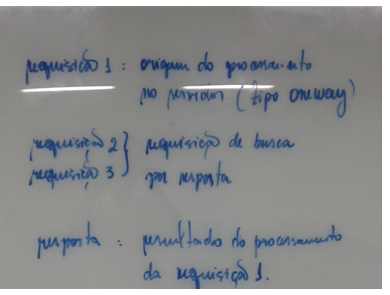 requisição 1 : origem do processamento
no servidor (tipo oneway)
requisição 2 } requisição de busca
requisição 3 } por resposta
resposta : resultado do processamento
da requisição 1.